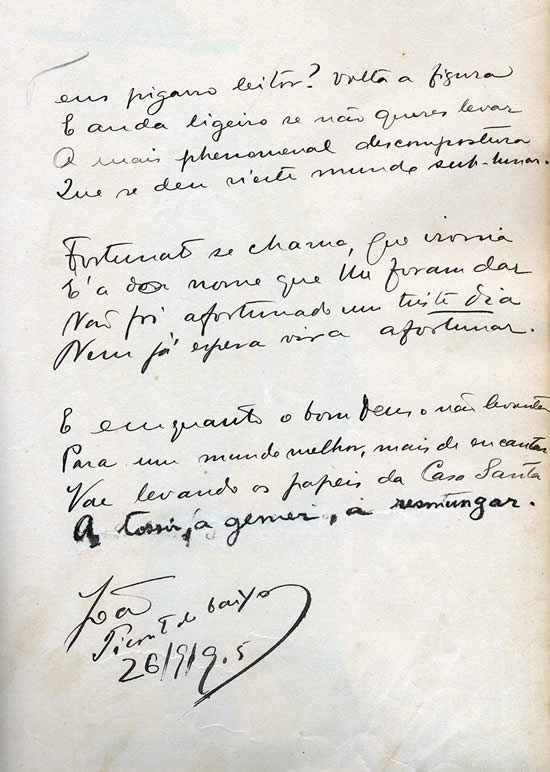 eus pigarro leitor? volta a figura
E anda ligeiro se não queres levar
A mais phenomenal descompostura
Que se deu n'este mundo sub-lunar.
Fortunat se chama, que ironia
E' a do nome que lhe foram dar
Não foi afortunado um triste dia
Nem já espera vir a afortunar.
E emquanto o bom Deus o não levanta
Para um mundo melhor, mais de encantar
Vae levando os papeis da Casa Santa
A tossir, á gemer, á resmungar.
João
26/9/9.5